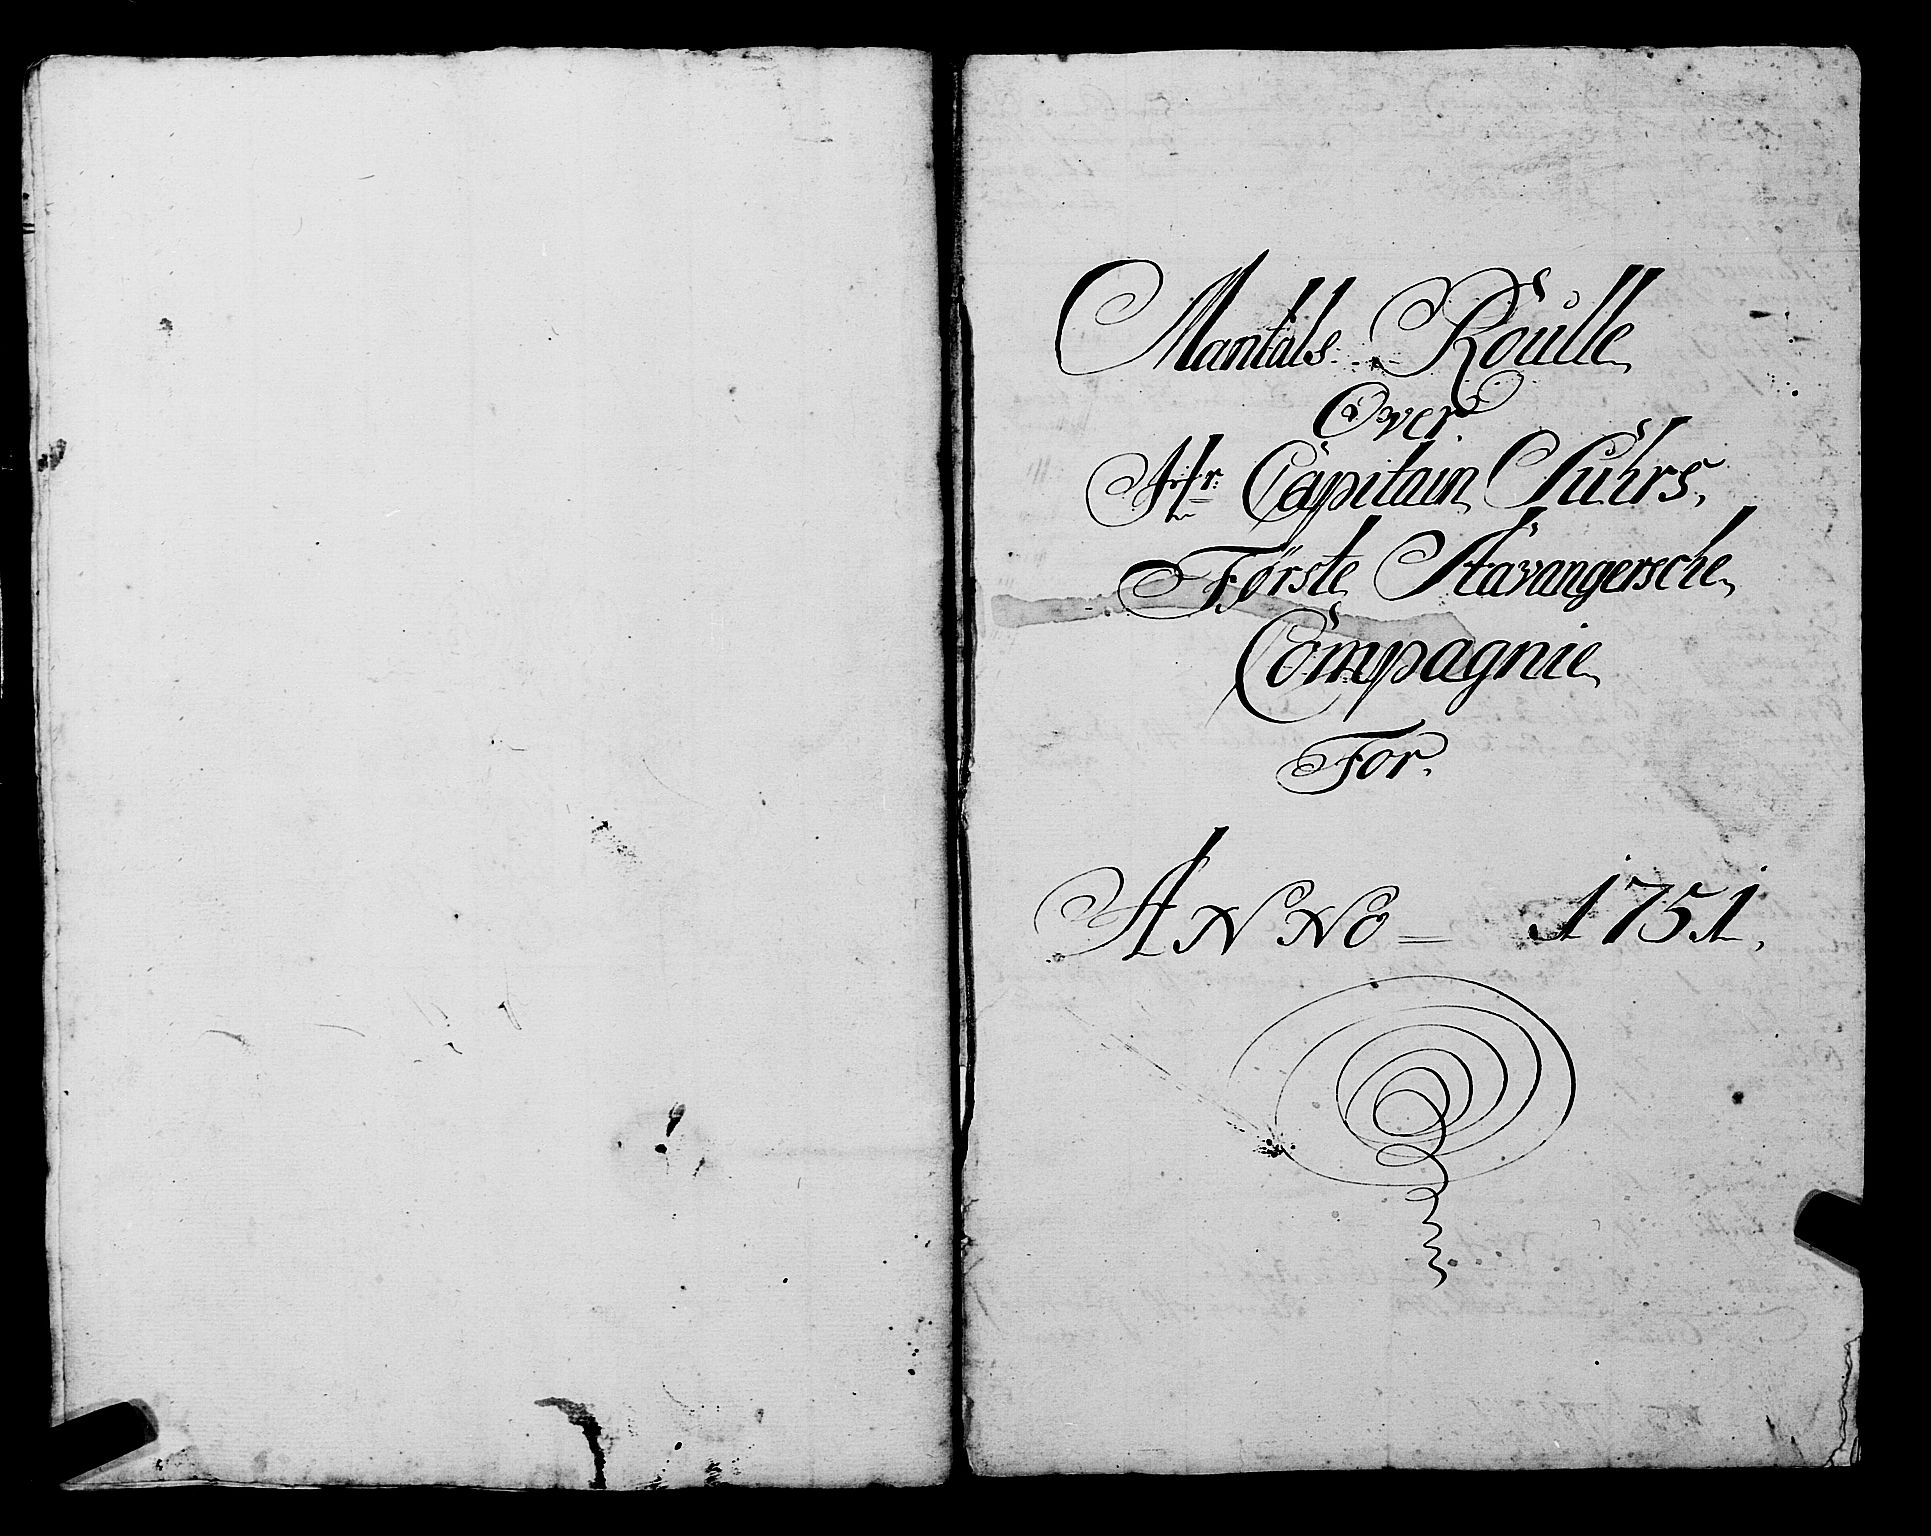 Mantals Roulle
Over
Hr Capitain Suhrs
Første Stavangersche
Compagnie
For.
ANNO = 1751.